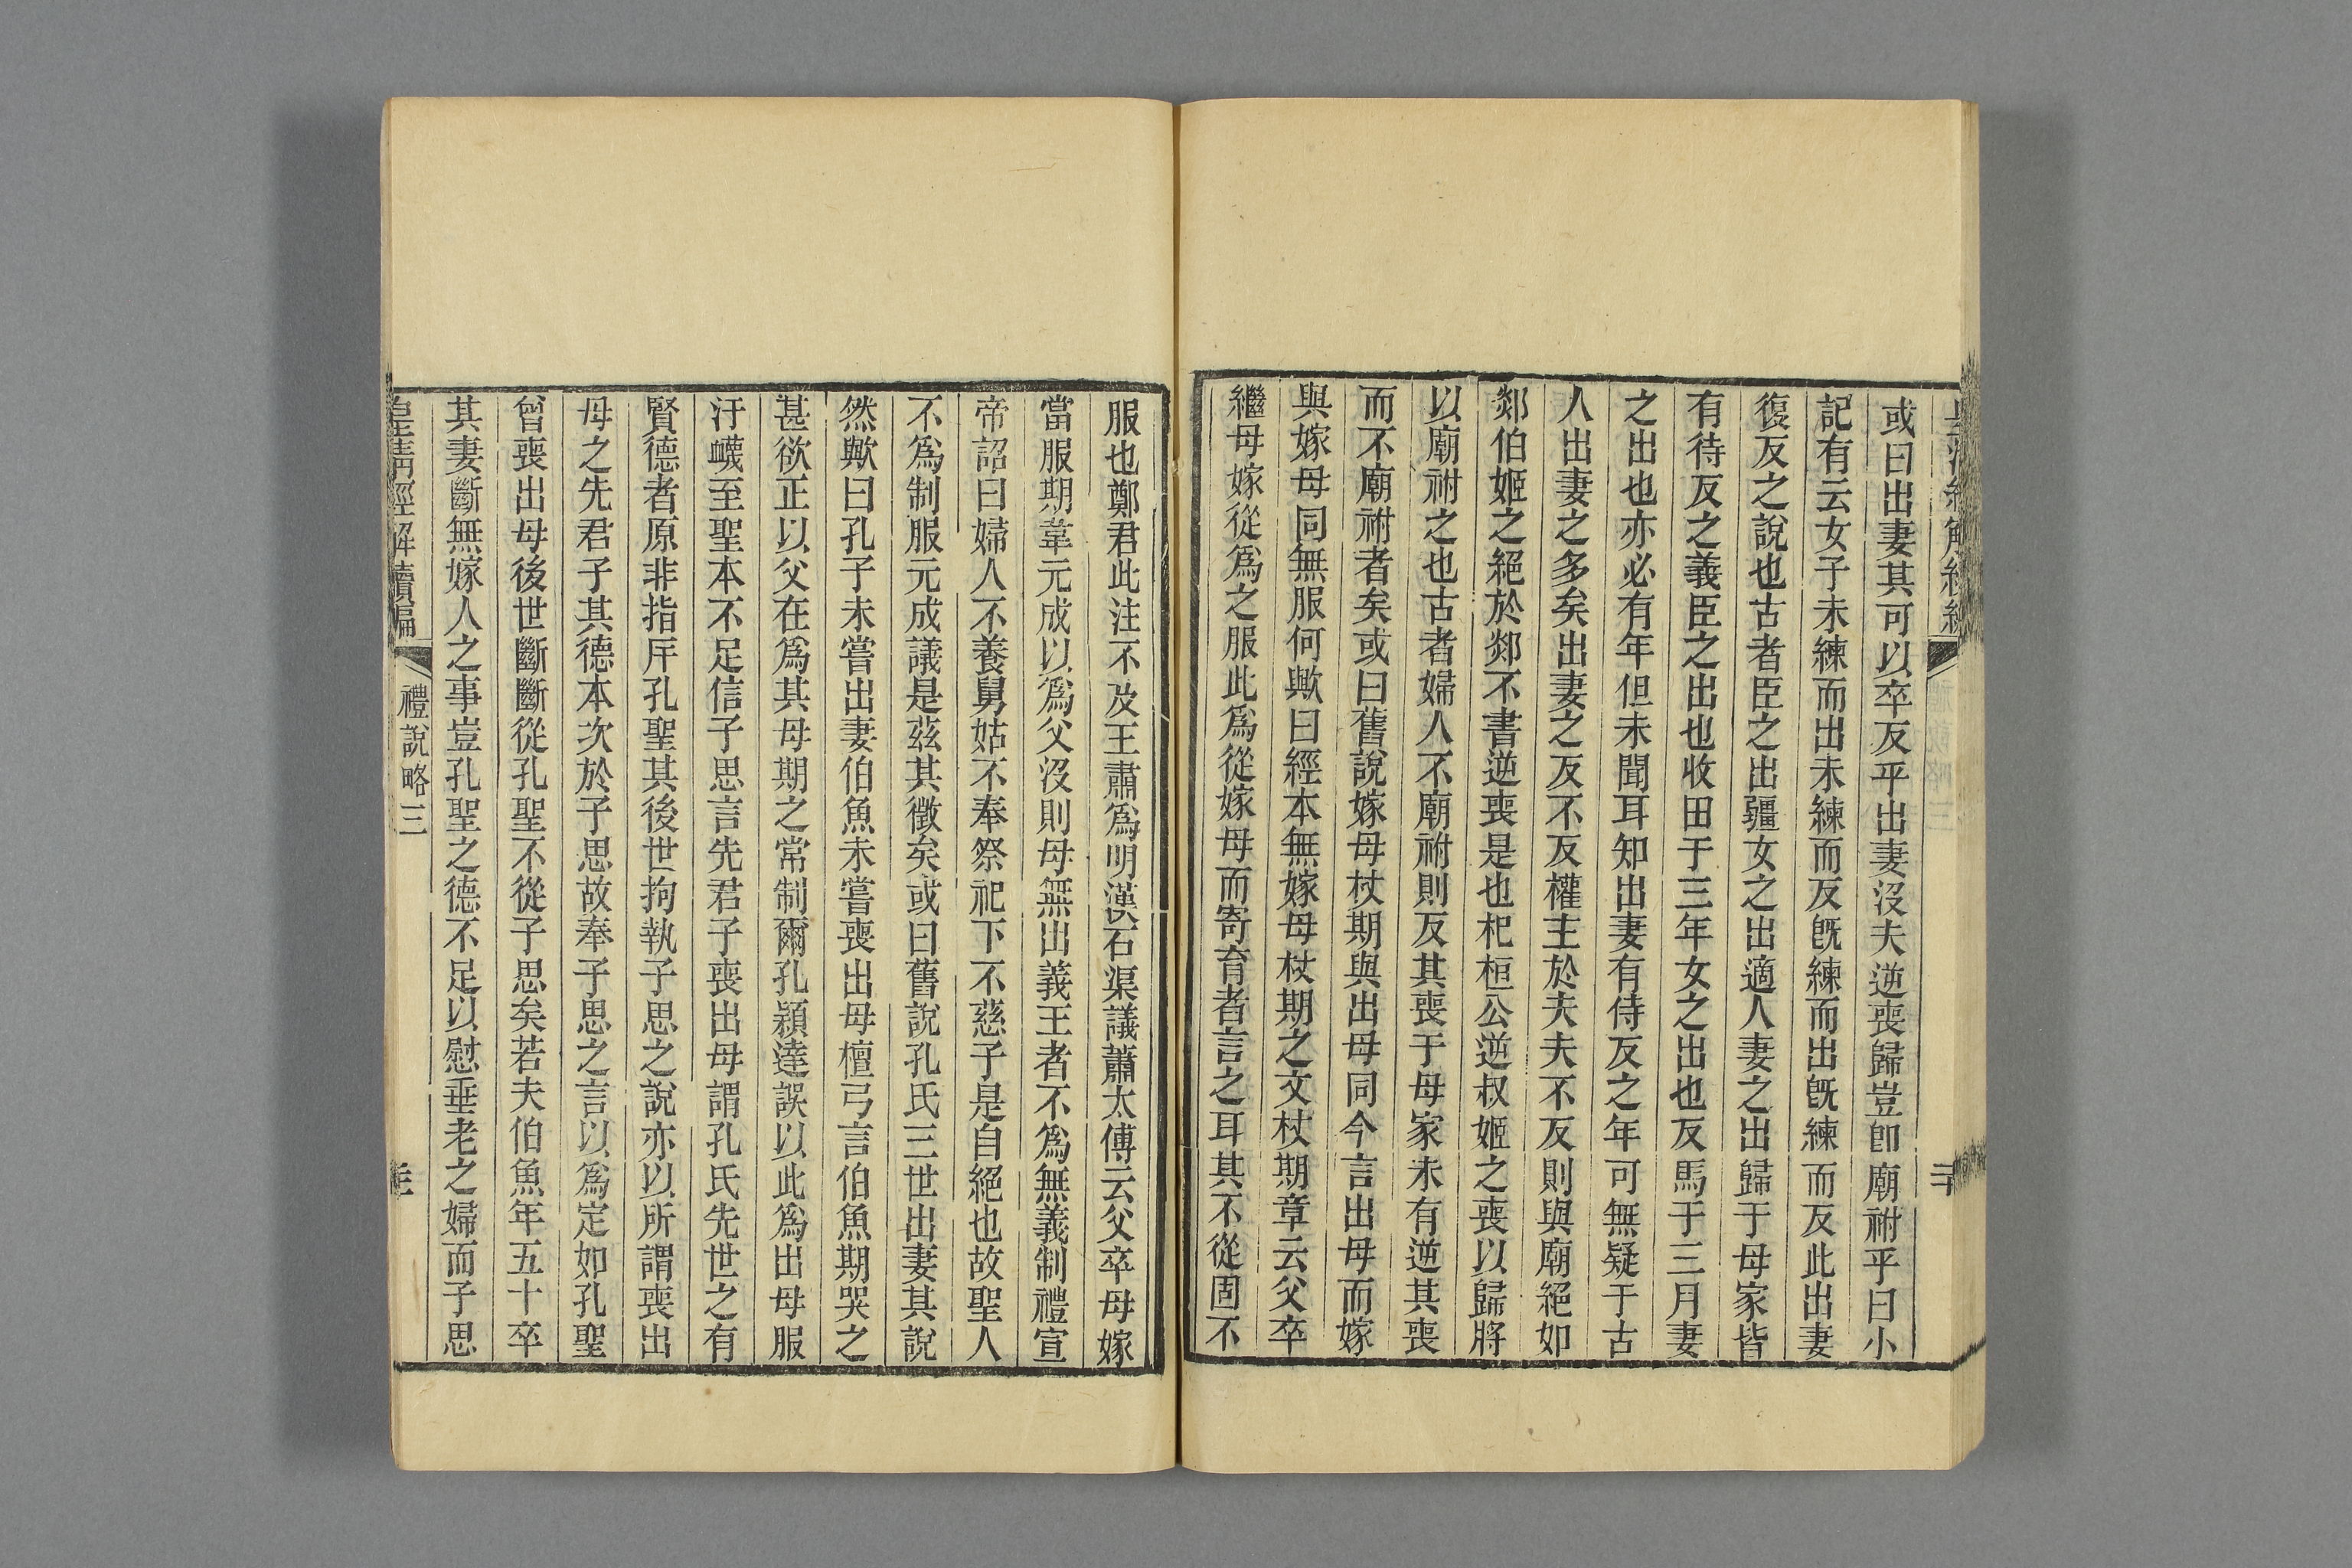 或曰出妻其可以卒反乎出妻沒夫逆喪歸豈卽廟祔乎曰小
記有云女子未練而出未練而反旣練而出旣練而反此出妻
復反之說也古者臣之出疆女之出適人妻之出歸于母家皆
有待反之義臣之出也收田于三年女之出也反馬于三月妻
之出也亦必有年但未聞耳知出妻有侍反之年可無疑于古
人出妻之多矣出妻之反不反權主於夫夫不反則與廟絕如
郯伯姬之絕於郯不書逆喪是也杞桓公逆叔姬之喪以歸將
以廟祔之也古者婦人不廟祔則反其喪于母家未有逆其喪
而不廟祔者矣或曰舊說嫁母杖期與出母同今言出母而嫁
與嫁母同無服何歟曰經本無嫁母杖期之文杖期章云父卒
繼母嫁從爲之服此爲從嫁母而寄育者言之耳其不從固不
服也鄭君此注不及王肅爲明漢石渠議蕭太傅云父卒母嫁
當服期韋元成以爲父沒則母無出義王者不爲無義制禮宣
帝詔曰婦人不養舅姑不奉祭祀下不慈子是自絕也故聖人
不爲制服元成議是茲其徵矣或曰舊說孔氏三世出妻其說
然歟曰孔子未嘗出妻伯魚未嘗喪出母檀弓言伯魚期哭之
甚欲正以父在爲其母期之常制爾孔穎達誤以此爲出母服
汙衊至聖本不足信子思言先君子喪出母謂孔氏先世之有
賢德者原非指斥孔聖其後世拘執子思之說亦以所謂喪出
母之先君子其德本次於子思故奉子思之言以爲定如孔聖
曾喪出母後世斷斷從孔聖不從子思矣若夫伯魚年五十卒
其妻斷無嫁人之事豈孔聖之德不足以慰垂老之婦而子思
皇淸經解續編
禮說略三